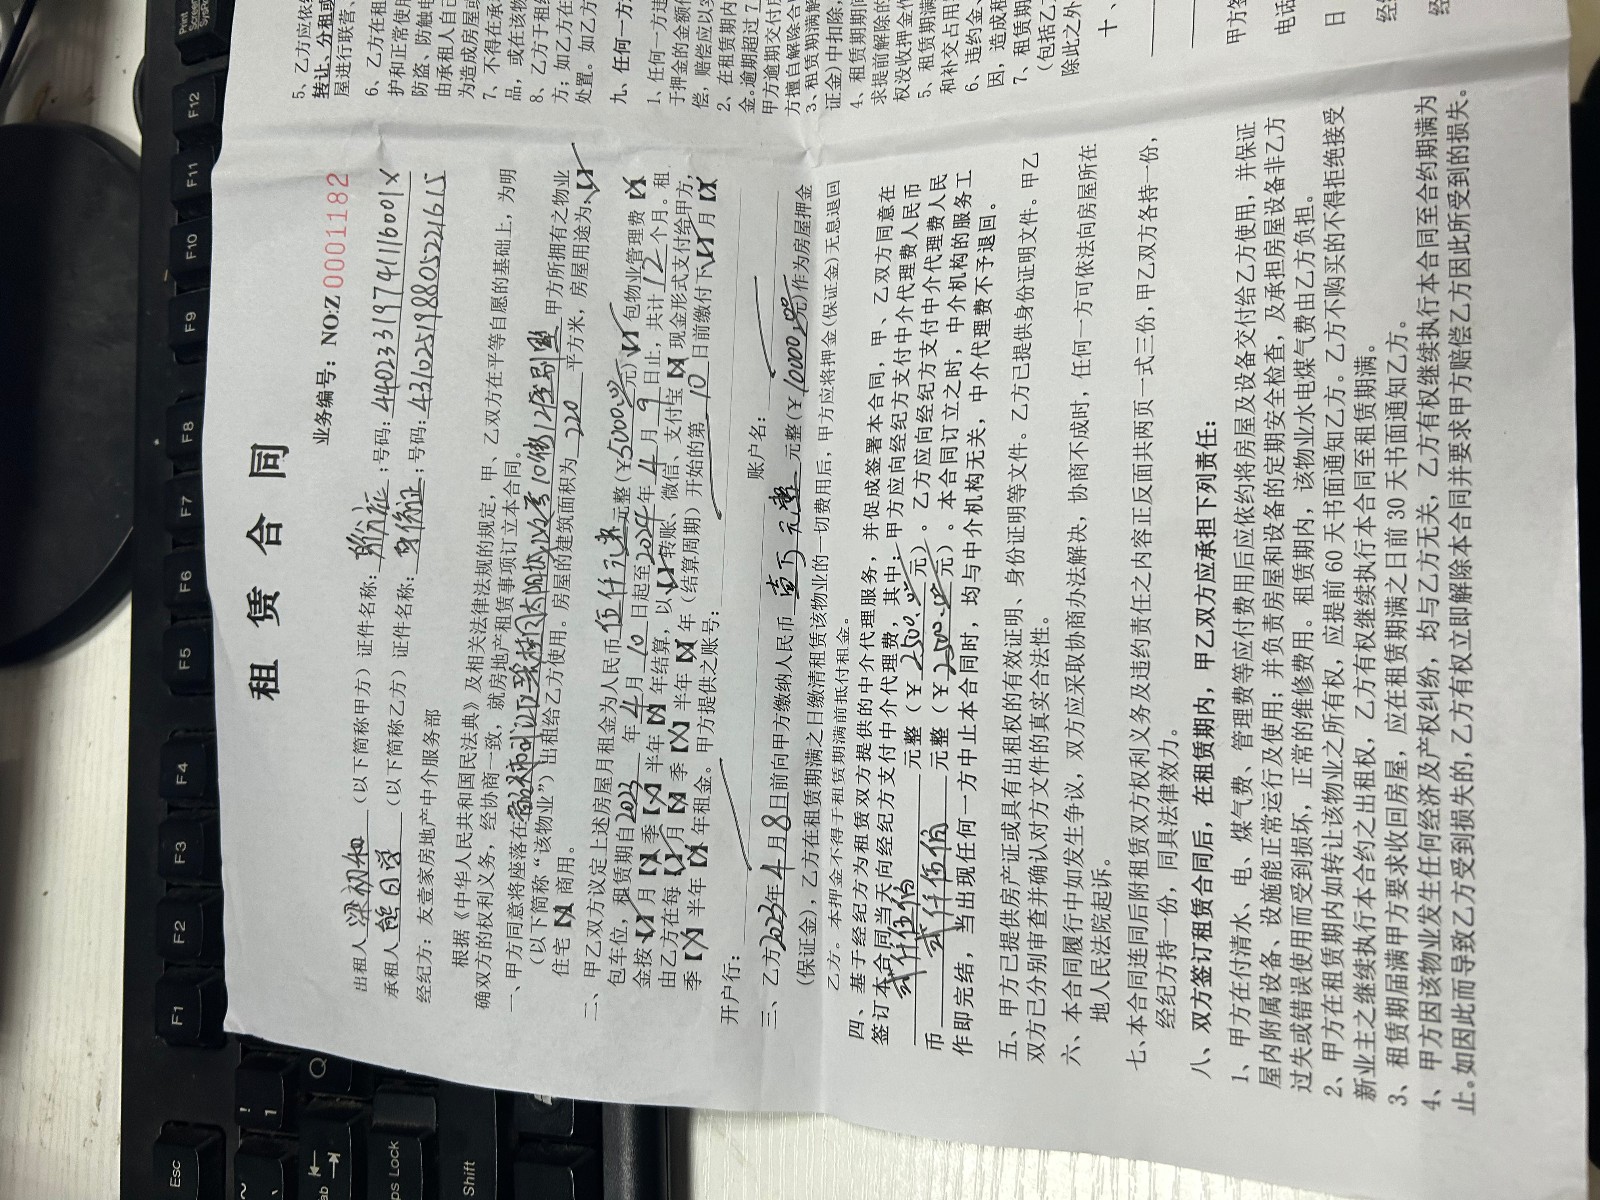 租 赁 合 同
业务编号：NO:Z 0001182
出租人梁初知（以下简称甲方）证件名称：身份证;号码：44023319741116001X
承租人熊日学（以下简称乙方）证件名称：身份证;号码：431025198805221615
经纪方：友壹家房地产中介服务部
根据《中华人民共和国民法典》及相关法律法规的规定，甲、乙双方在平等自愿的基础上，为明
确双方的权利义务，经协商一致，就房地产租赁事项订立本合同。
一、甲方同意将座落在 10 甲方所拥有之物业
（以下简称“该物业”）出租给乙方使用。房屋的建筑面积为 220 平方米，房屋用途为【√】
住宅【X】商用。
二、甲乙双方议定上述房屋月租金为人民币伍仟元整元整（¥5000.00元）【√】包物业管理费【X】
包车位，租赁期自2023年4月10日起至2024年4月9日止，共计12个月。租
金按【√】月【X】季【X】半年【X】年结算，以【√】转账、微信、支付宝【X】现金形式支付给甲方，
由乙方在每【√】月【X】季【X】半年【X】年（结算周期）开始的第10日前缴付下【√】月【X】
季【X】半年【X】年租金。甲方提供之账号：
开户行： 账户名：
三、乙方2023年4月8日前向甲方缴纳人民币壹万元整元整（¥10000.00元)作为房屋押金
(保证金)，乙方在租赁期满之日缴清租赁该物业的一切费用后，甲方应将押金(保证金)无息退回
乙方。本押金不得于租赁期满前抵付租金。
四、基于经纪方为租赁双方提供的中介代理服务，并促成签署本合同，甲、乙双方同意在
签订本合同当天向经纪方支付中介代理费，其中：甲方应向经纪方支付中介代理费人民币
贰仟伍佰元整（¥2500.00元）。乙方应向经纪方支付中介代理费人民
币贰仟伍佰元整（¥2500.00元）。本合同订立之时，中介机构的服务工
作即完结，当出现任何一方中止本合同时，均与中介机构无关，中介代理费不予退回。
五、甲方已提供房产证或具有出租权的有效证明、身份证明等文件。乙方已提供身份证明文件。甲乙
双方已分别审查并确认对方文件的真实合法性。
六、本合同履行中如发生争议，双方应采取协商办法解决，协商不成时，任何一方可依法向房屋所在
地人民法院起诉。
七、本合同连同后附租赁双方权利义务及违约责任之内容正反面共两页一式三份，甲乙双方各持一份，
经纪方持一份，同具法律效力。
八、双方签订租赁合同后，在租赁期内，甲乙双方应承担下列责任：
1、甲方在付清水、电、煤气费、管理费等应付费用后应依约将房屋及设备交付给乙方使用，并保证
屋内附属设备、设施能正常运行及使用；并负责房屋和设备的定期安全检查，及承担房屋设备非乙方
过失或错误使用而受到损坏，正常的维修费用。租赁期内，该物业水电煤气费由乙方负担。
2、甲方在租赁期内如转让该物业之所有权，应提前 60 天书面通知乙方。乙方不购买的不得拒绝接受
新业主之继续执行本合约之出租权，乙方有权继续执行本合同至租赁期满。
3、租赁期届满甲方要求收回房屋，应在租赁期满之日前 30 天书面通知乙方。
4、甲方因该物业发生任何经济及产权纠纷，均与乙方无关，乙方有权继续执行本合同至合约期满为
止。如因此而导致乙方受到损失的，乙方有权立即解除本合同并要求甲方赔偿乙方因此所受到的损失。
5、乙方应依
转让、分租或
屋进行联营、
6、乙方在租
护和正常使用
防盗、防触电
由承租人自己
为造成房屋或
7、不得在承
品，或在该物
8、乙方于租
方；如乙方在
处置。如乙方
九、任何一方
1、任何一方违
于押金的金额
偿，赔偿应以
2、在租赁期内
金。逾期超过7
甲方逾期交付
方擅自解除合
3、租赁期满解
证金)中扣除，
4、租赁期期间
求提前解除的
权没收押金作
5、租赁期满
和补交占用
6、违约金、
因，造成租
7、租赁期
（包括乙
除此之外
十、
甲方签
电话
日
经
经
Esc
F1
F2
F3
F4
F5
F6
F7
F8
F9
F10
F11
F12
Print
Screen
SysRq
~
!
1
Q
Shift